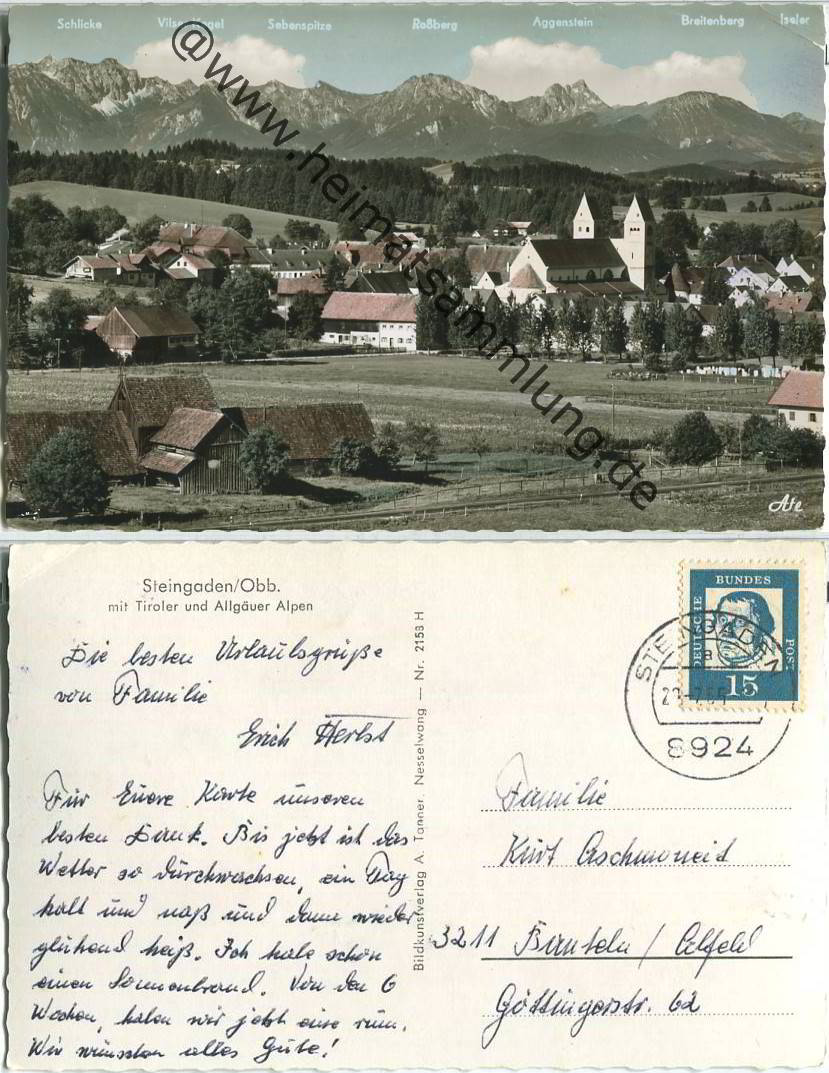 Schlicke Vilser Kegel Sebenspitze Roßberg Aggenstein Breitenberg Iseler
@www.heimatsammlung.de
Ate
Steingaden/Obb.
mit Tiroler und Allgäuer Alpen
Die besten Urlaubsgrüße
von Familie
Erich Herbst
Für Euere Karte unseren
besten Dank. Bis jetzt ist das
Wetter so durchwachsen, ein Tag
kalt und naß und dann wieder
glühend heiß. Ich habe schon
einen Sonnenbrand. Von den 6
Wochen, haben wir jetzt eine rum.
Wir wünschen alles Gute!
Bildkunstverlag A. Tanner, Nesselwang — Nr. 2158 H
DEUTSCHE BUNDES POST
15
STEINGADEN
a
8924
Familie
Kurt Aschmoneit
3211 Banteln / Alfeld
Göttingerstr. 62